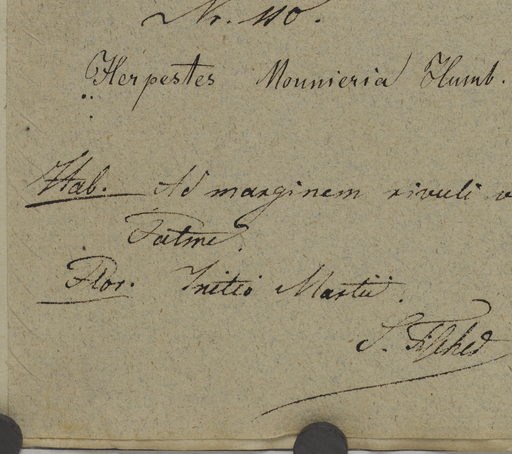 Nr. 110.
Herpestes Mounieria Humb.
Hab. Ad marginem rivuli
Fatme.
Flor. Initio Martii.
S. Fischer